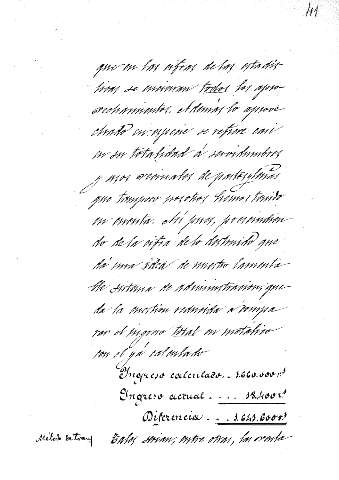 41
que en las cifras de las estadís-
ticas se incluían todos los apro-
vechamientos. Además lo aprove-
chado en especie se refiere casi
en su totalidad á servidumbres
y usos vecinales de pastos y leñas
que tampoco nosotros hemos tenido
en cuenta. Así pues, prescindien-
do de la cifra de lo destruido que
dá una idea de nuestro lamenta-
ble sistema de administración, que-
da la cuestión reducida a compa-
rar el ingreso total en metálico
con el yá calculado
Ingreso calculado .. 1.660.000
Ingreso actual ... 18.400
Diferencia ... 1.641.600
Tales serían, entre otras, las venta-